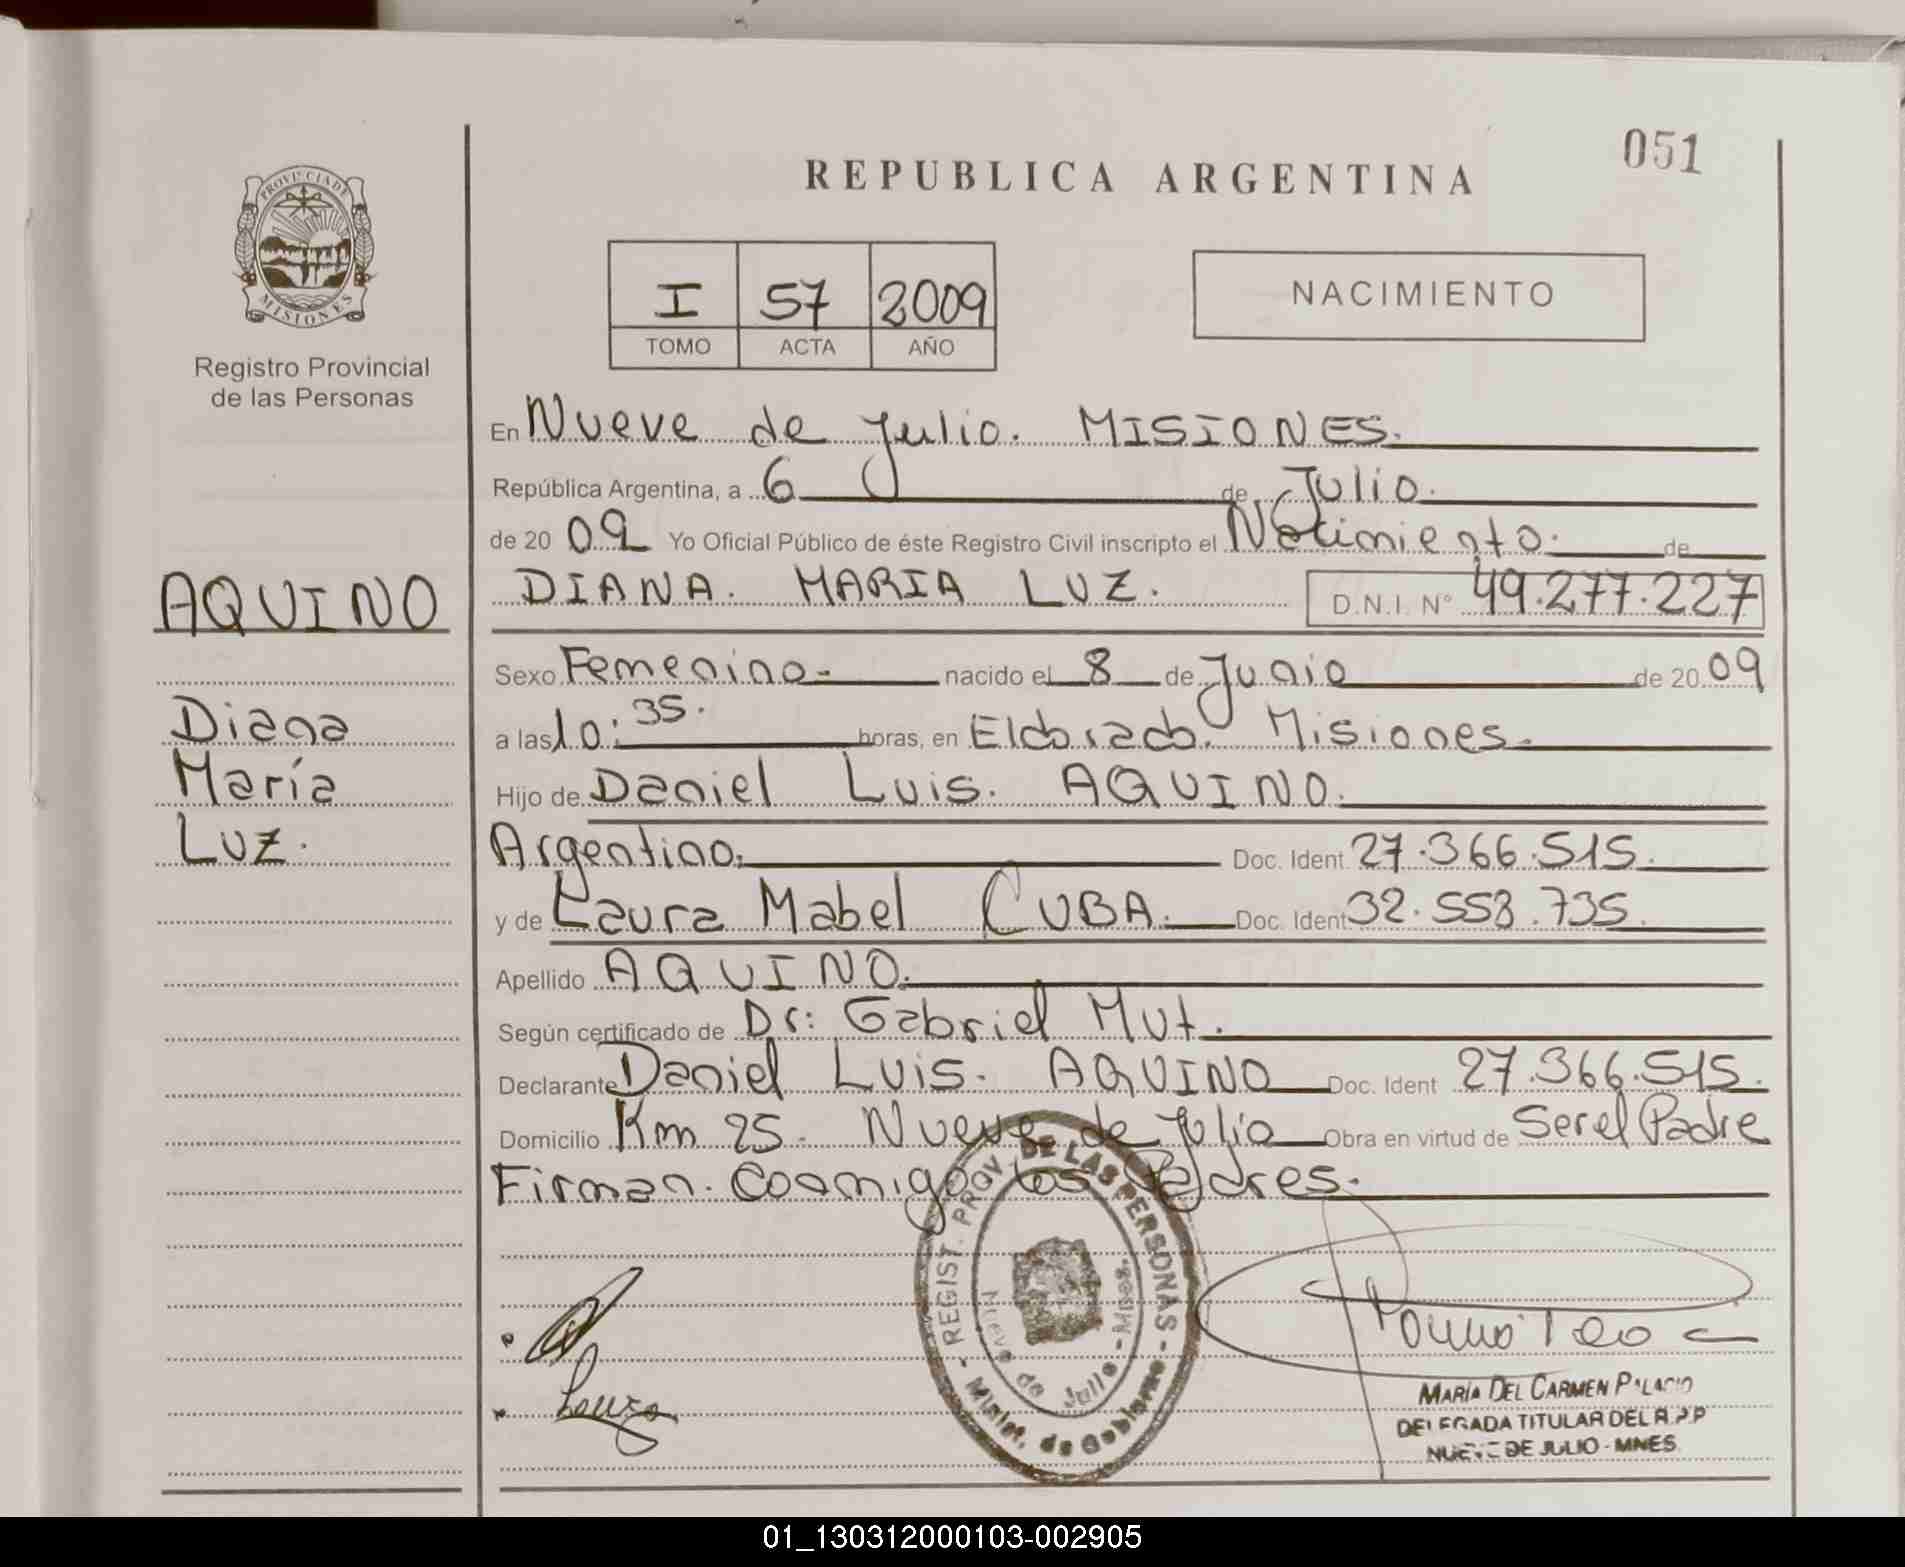 051
REPUBLICA ARGENTINA
PROVINCIA DE
MISIONES
Registro Provincial
de las Personas
I 57 2009
TOMO ACTA AÑO
NACIMIENTO
En Nueve de Julio. MISIONES.
República Argentina, a 6 de Julio.
de 20 09 Yo Oficial Público de éste Registro Civil inscripto el Nacimiento. de
AQUINO
DIANA. MARIA LUZ. D.N.I. N° 49.277.227
Sexo Femenino- nacido el 8 de Junio de 20 09
Diana
María
Luz.
a las 10:35. horas, en Eldorado. Misiones.
Hijo de Daniel Luis. AQUINO.
Argentino. Doc. Ident. 27.366.515.
y de Laura Mabel CUBA. Doc. Ident 32.558.735.
Apellido AQUINO.
Según certificado de Dr: Gabriel Mut.
Declarante Daniel Luis. AQUINO Doc. Ident 27.366.515.
Domicilio Km 25. Nueve de Julio Obra en virtud de Ser el Padre
Firman. Conmigo los Padres.
REGIST. PROV. DE LAS PERSONAS - Minist. de Gobierno -
Nueve de Julio - Mnes.
MARÍA DEL CARMEN PALACIO
DELEGADA TITULAR DEL R.P.P
NUEVE DE JULIO - MNES.
01_130312000103-002905